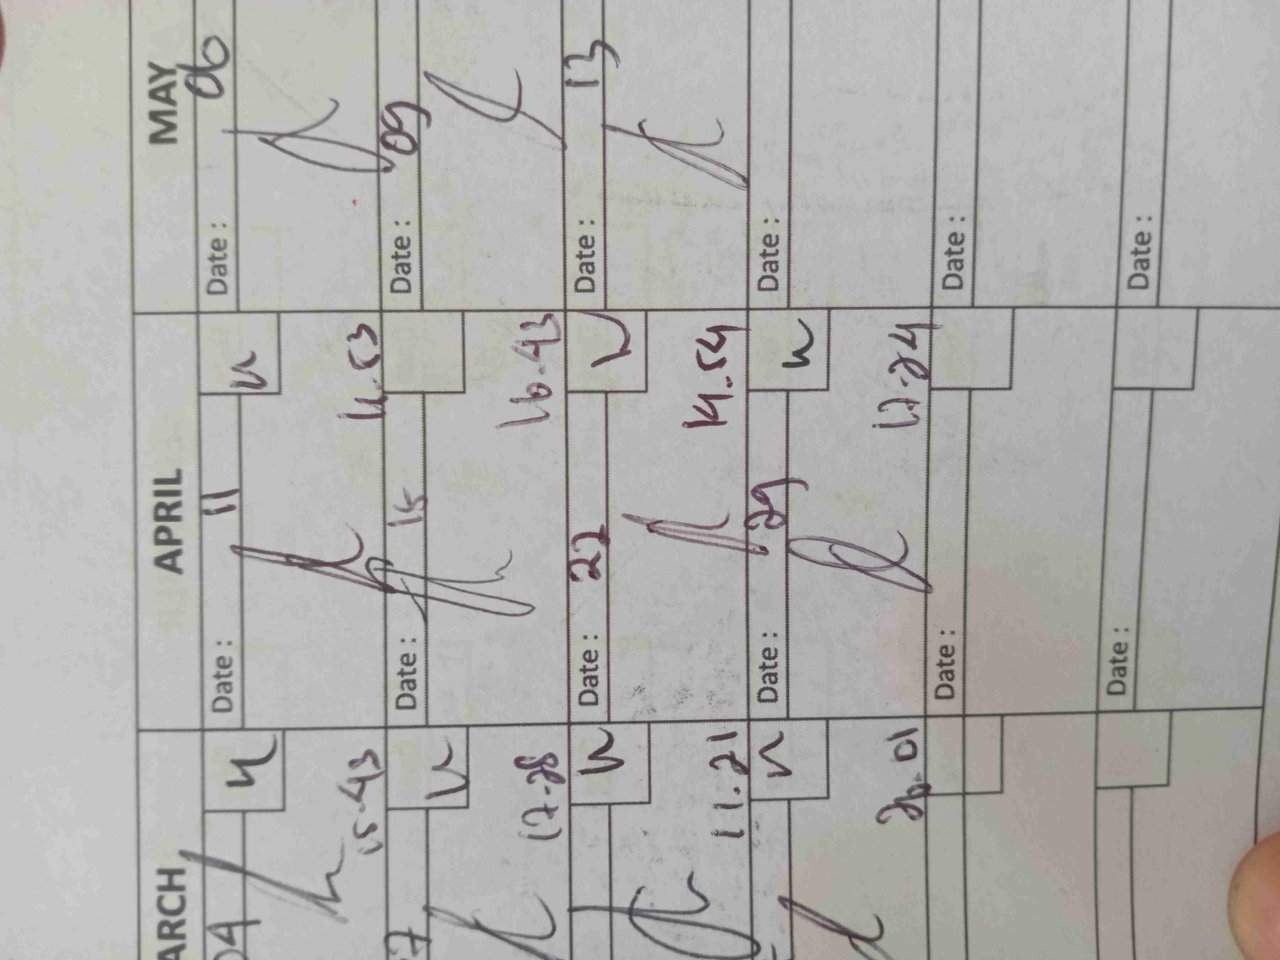 ARCH
APRIL
MAY
04
Date : 11
Date : 06
15.43
14.53
Date : 15
Date : 09
17.28
16.43
Date : 22
Date : 13
11.21
14.54
Date : 29
Date :
20.01
17.24
Date :
Date :
Date :
Date :